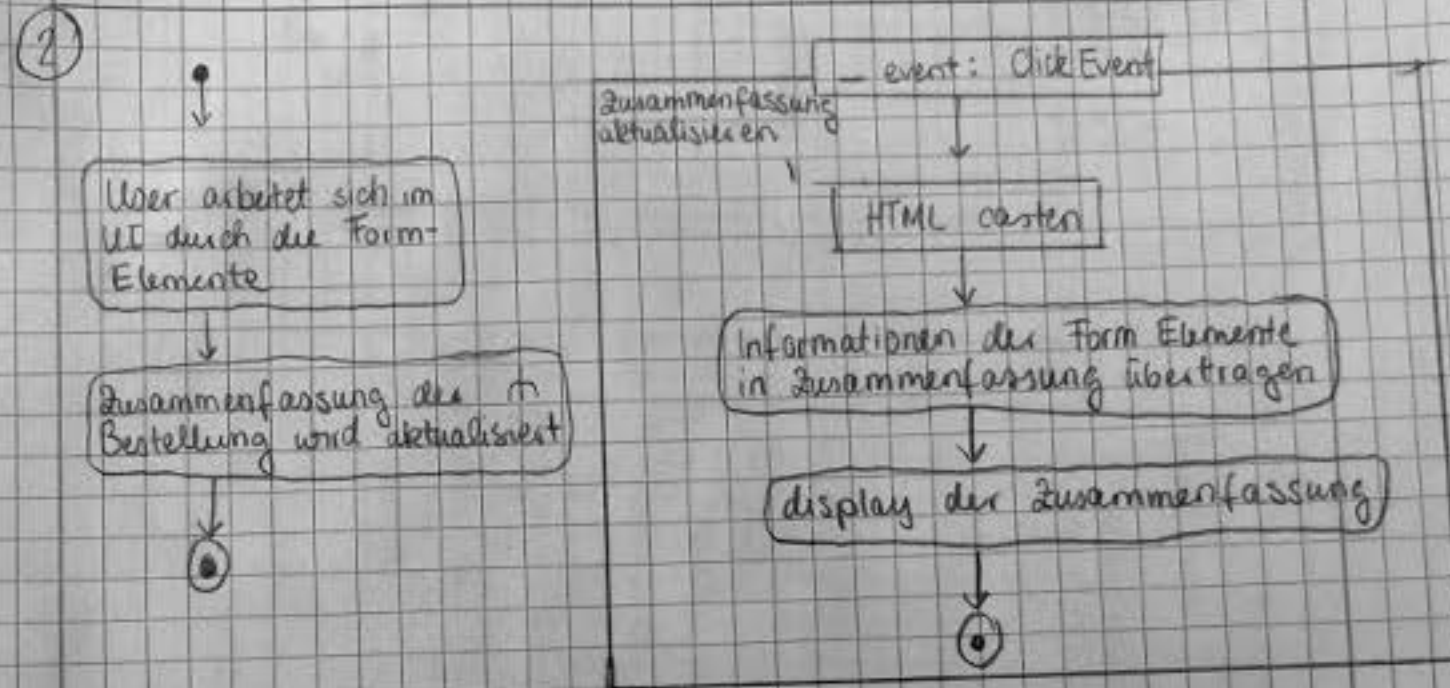 2
User arbeitet sich im
UI durch die Form-
Elemente
Zusammenfassung der
Bestellung wird aktualisiert
_event: ClickEvent
Zusammenfassung
aktualisieren
HTML casten
Informationen der Form Elemente
in Zusammenfassung übertragen
display der Zusammenfassung